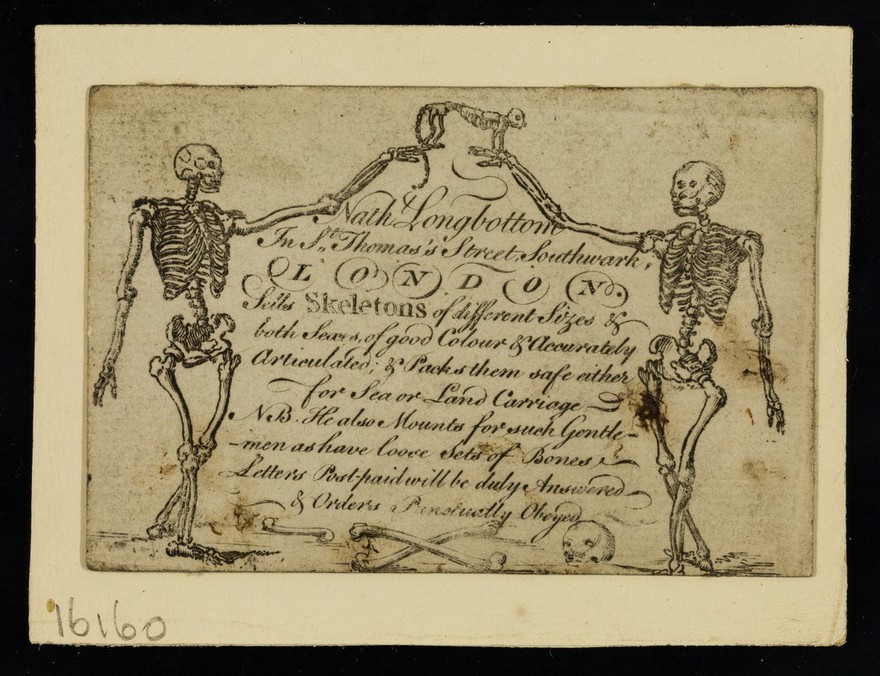 Nath.l Longbottom
In St. Thomas's Street Southwark,
LONDON.
Sells Skeletons of different Sizes &
both Sexes, of good Colour & Accurately
Articulated; & Packs them safe either
for Sea or Land Carriage
NB. He also Mounts for such Gentle-
-men as have loose Sets of Bones
Letters Post-paid will be duly Answered
& Orders Punctually Obeyed
16160